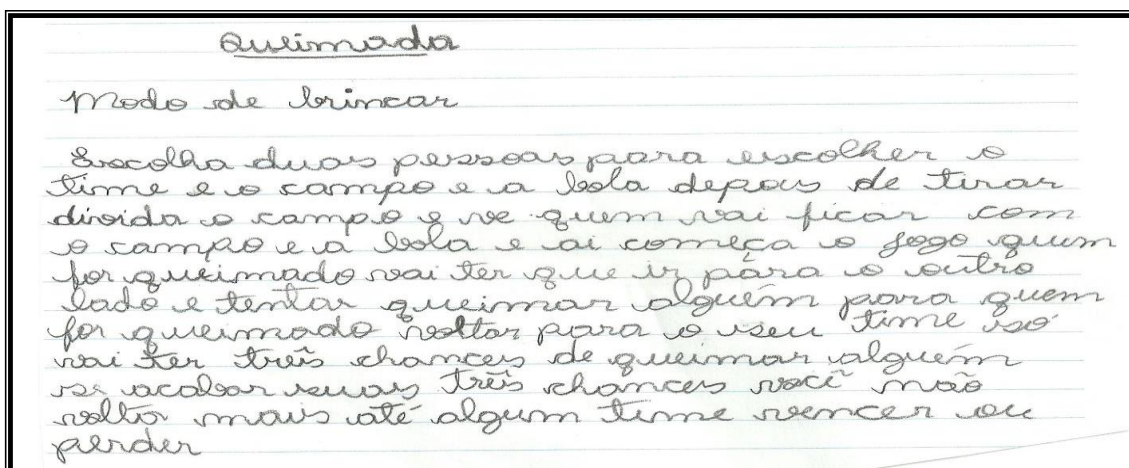 Queimada
Modo de brincar
Escolha duas pessoas para escolher o
time e o campo e a bola depois de tirar
divida o campo e ve quem vai ficar com
o campo e a bola e ai começa o jogo quem
for queimado vai ter que ir para o outro
lado e tentar queimar alguém para quem
for queimado voltar para o seu time só
vai ter três chances de queimar alguém
se acabar suas três chances você não
volta mais até algum time vencer ou
perder